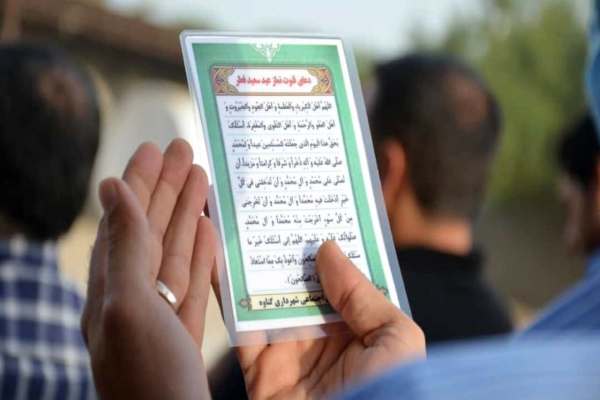 دعای قنوت نماز عید سعید فطر
اللهم اهل الکبریاء والعظمة و اهل الجود والجبروت و
اهل العفو والرحمة و اهل التقوی والمغفرة، اسئلک
بحق هذا الیوم الذی جعلته للمسلمین عیداً ولمحمد
صلی الله علیه و آله ذخراً و شرفاً و کرامتاً و مزیداً أن
تصلی علی محمد و آل محمد و أن تدخلنی فی کل
خیر ادخلت فیه محمداً و آل محمد و أن تخرجنی
من کل سوء اخرجت منه محمداً و آل محمد
صلواتک علیه و علیهم اللهم إنی أسئلک خیر ما
سئلک وأعوذ بک مما استعاذ
اجتماعی شهرداری گناوه